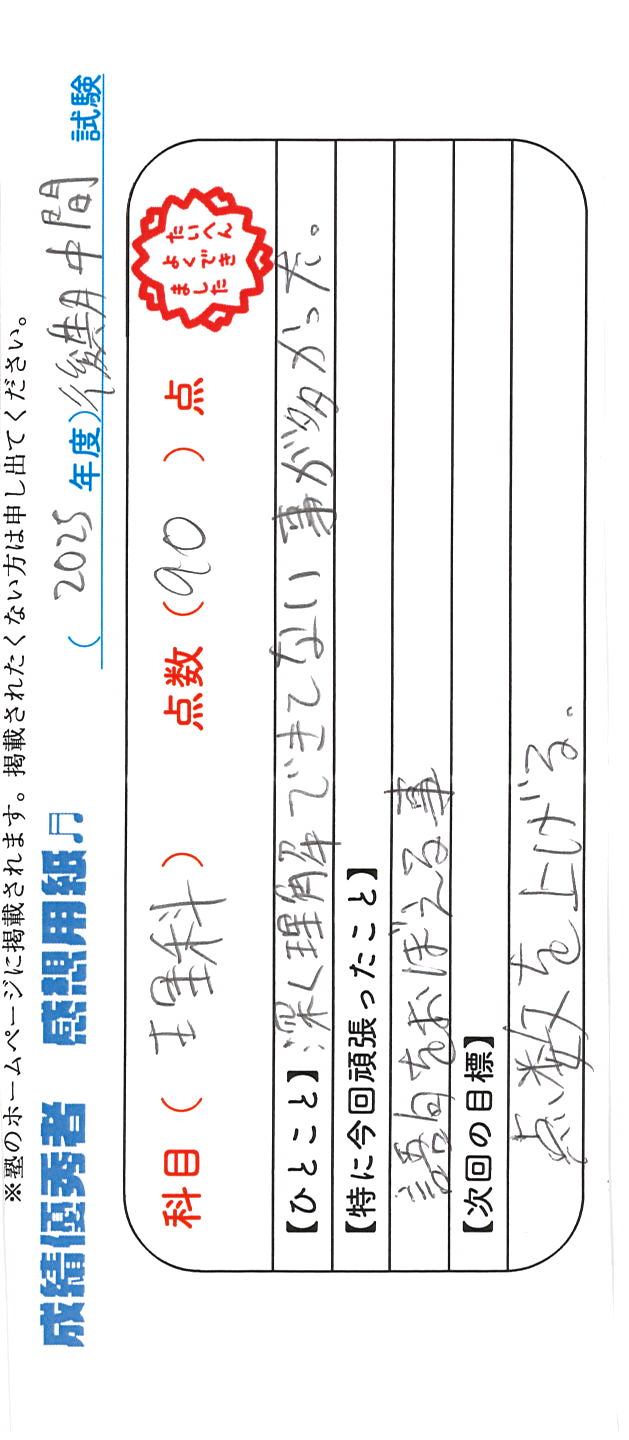 ※塾のホームページに掲載されます。掲載されたくない方は申し出てください。
成績優秀者 感想用紙♫ （2025年度）後期中間試験
科目（理科） 点数（90）点
たいへん
よくでき
ました
【ひとこと】深く理解できてない事が多かった。
【特に今回頑張ったこと】
語句をおぼえる事
【次回の目標】
点数を上げる。